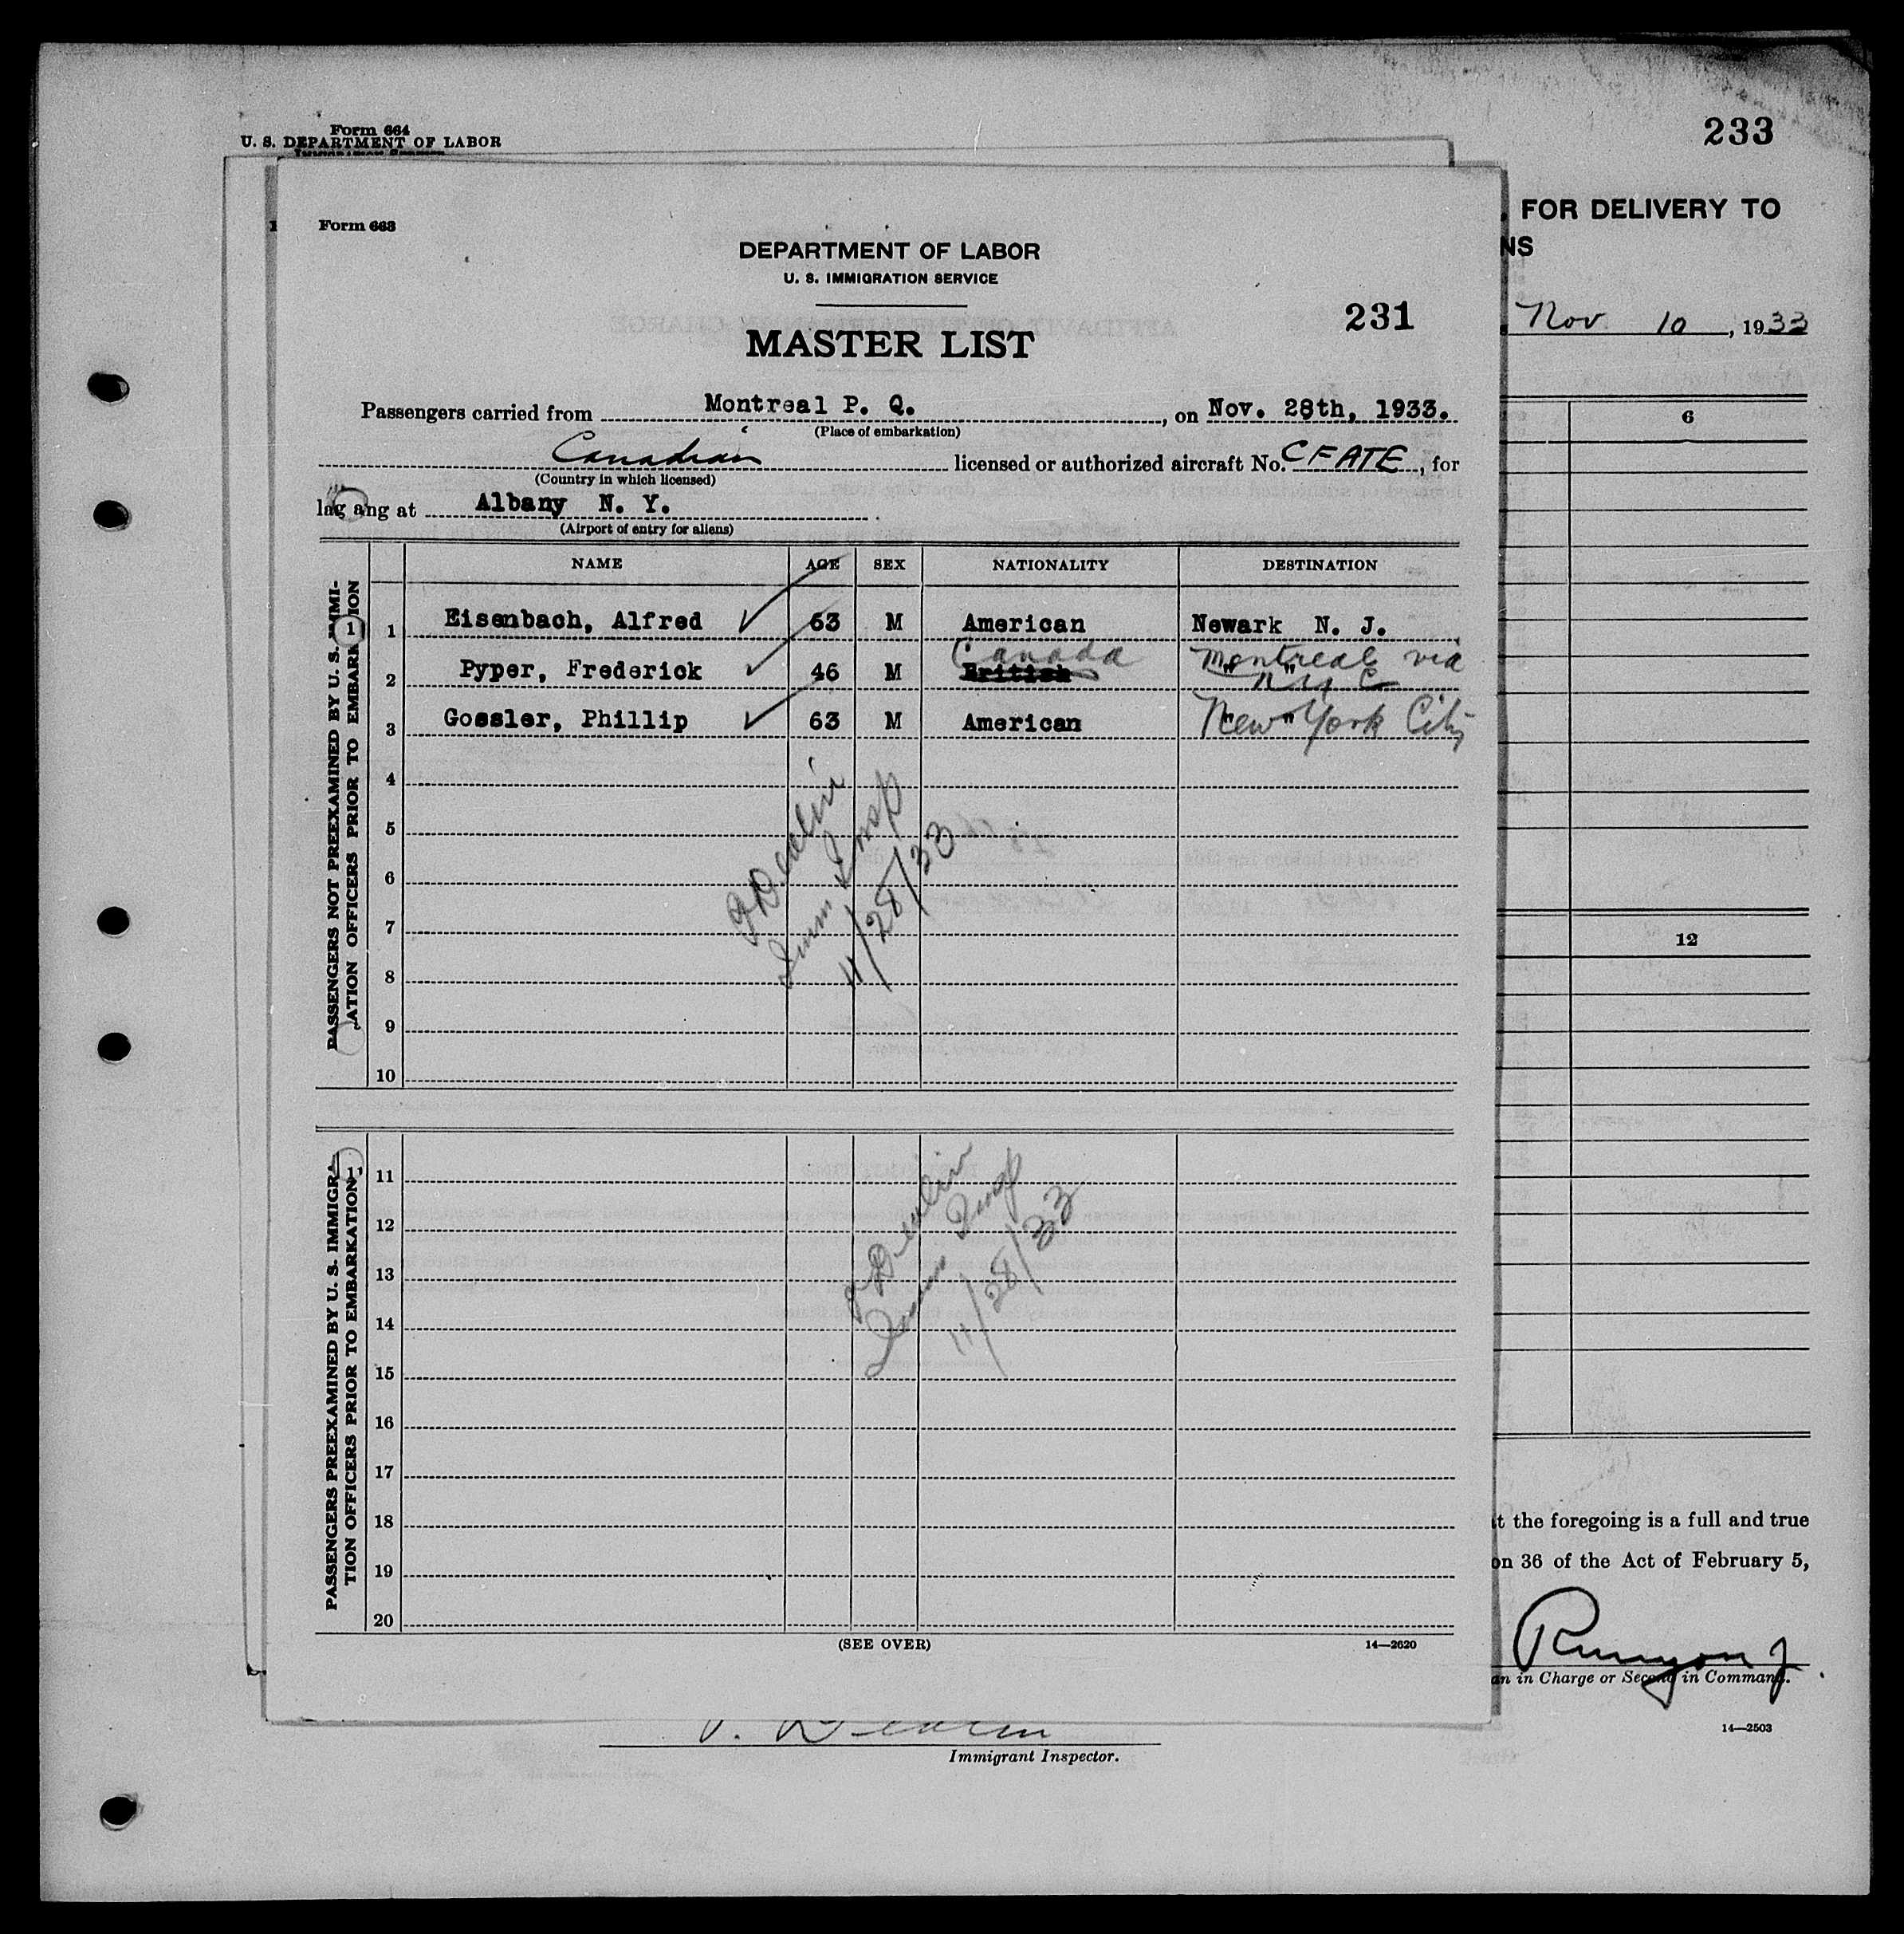 Form 664
U. S. DEPARTMENT OF LABOR
233
. FOR DELIVERY TO
NS
Nov 10, 1933
6
12
t the foregoing is a full and true
on 36 of the Act of February 5,
Runyon J.
an in Charge or Second in Command.
14—2503
Form 663
DEPARTMENT OF LABOR
U. S. IMMIGRATION SERVICE
231
MASTER LIST
Passengers carried from Montreal P. Q., on Nov. 28th, 1933.
(Place of embarkation)
Canadian licensed or authorized aircraft No. CFATE, for
(Country in which licensed)
ng at Albany N. Y.
(Airport of entry for aliens)
NAME AGE SEX NATIONALITY DESTINATION
PASSENGERS NOT PREEXAMINED BY U. S. IMMI-
GRATION OFFICERS PRIOR TO EMBARKATION
1 Eisenbach, Alfred 63 M American Newark N. J.
Canada Montreal via
2 Pyper, Frederick 46 M British " " N Y C
3 Gossler, Phillip 63 M American " " New York City
4
5
6
7
8
9
10
Devlin
Imm Insp
11/28/33
PASSENGERS PREEXAMINED BY U. S. IMMIGRA-
TION OFFICERS PRIOR TO EMBARKATION
11
12
13
14
15
16
17
18
19
20
Devlin
Imm Insp
11/28/33
(SEE OVER)
14—2620
Immigrant Inspector.